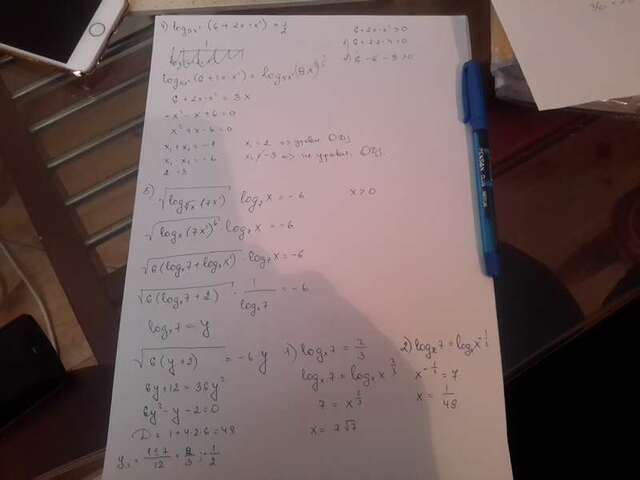 4) log₉ₓ² (6+2x-x²) = 1/2
6+2x-x²>0
1) 6+2·2-4>0
2) 6-6-9>0
6+2x-x² = 3x
-x²-x+6=0
x²+x-6=0
x₁+x₂=-1
x₁·x₂=-6
2 -3
x₁=2 => удовл ОДЗ
x₂≠-3 => не удовл. ОДЗ.
5) √(log_√x (7x²)) · log₇x = -6
x>0
√(logₓ(7x²)⁶) · log₇x = -6
√(6(logₓ7+logₓx²)) · log₇x = -6
√(6(logₓ7+2)) · 1/logₓ7 = -6
logₓ7 = y
√(6(y+2)) = -6·y
6y+12=36y²
6y²-y-2=0
D=1+4·2·6=48
y₁=1±7/12 = 2/3 ; -1/2
1) logₓ7 = 2/3
logₓ7 = logₓx^(2/3)
7 = x^(2/3)
x = 7√7
2) logₓ7=logₓx^(-1/2)
x^(-1/2) = 7
x = 1/49